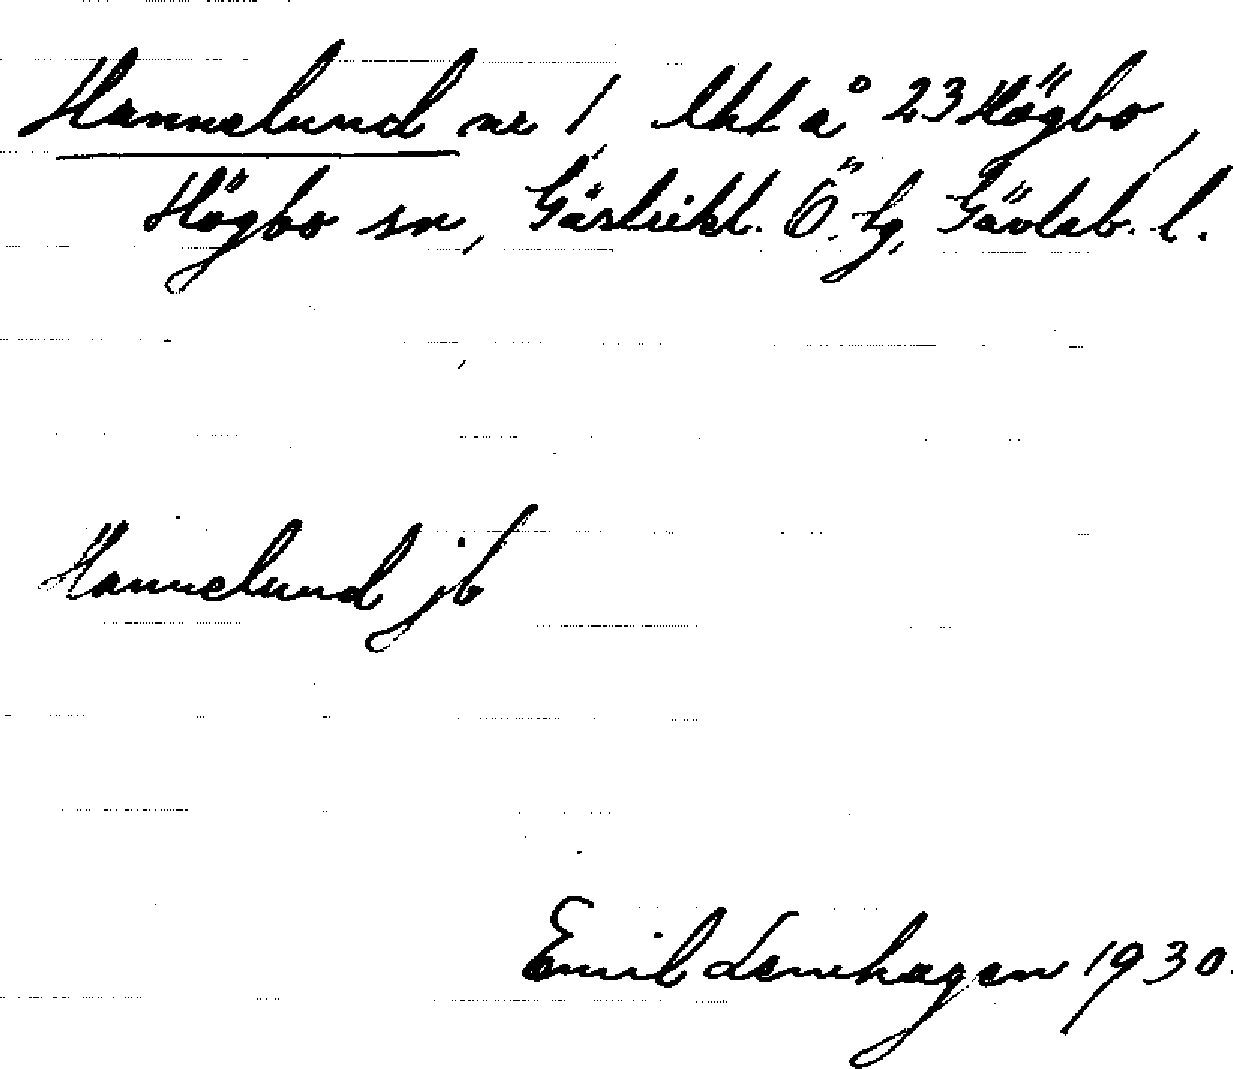 Hannelund nr 1, lht å 23 Högbo,
Högbo sn, Gästrikl. Ö. tg, Gävleb. l.
Hannelund jb
Emil Lenhagen 1930.